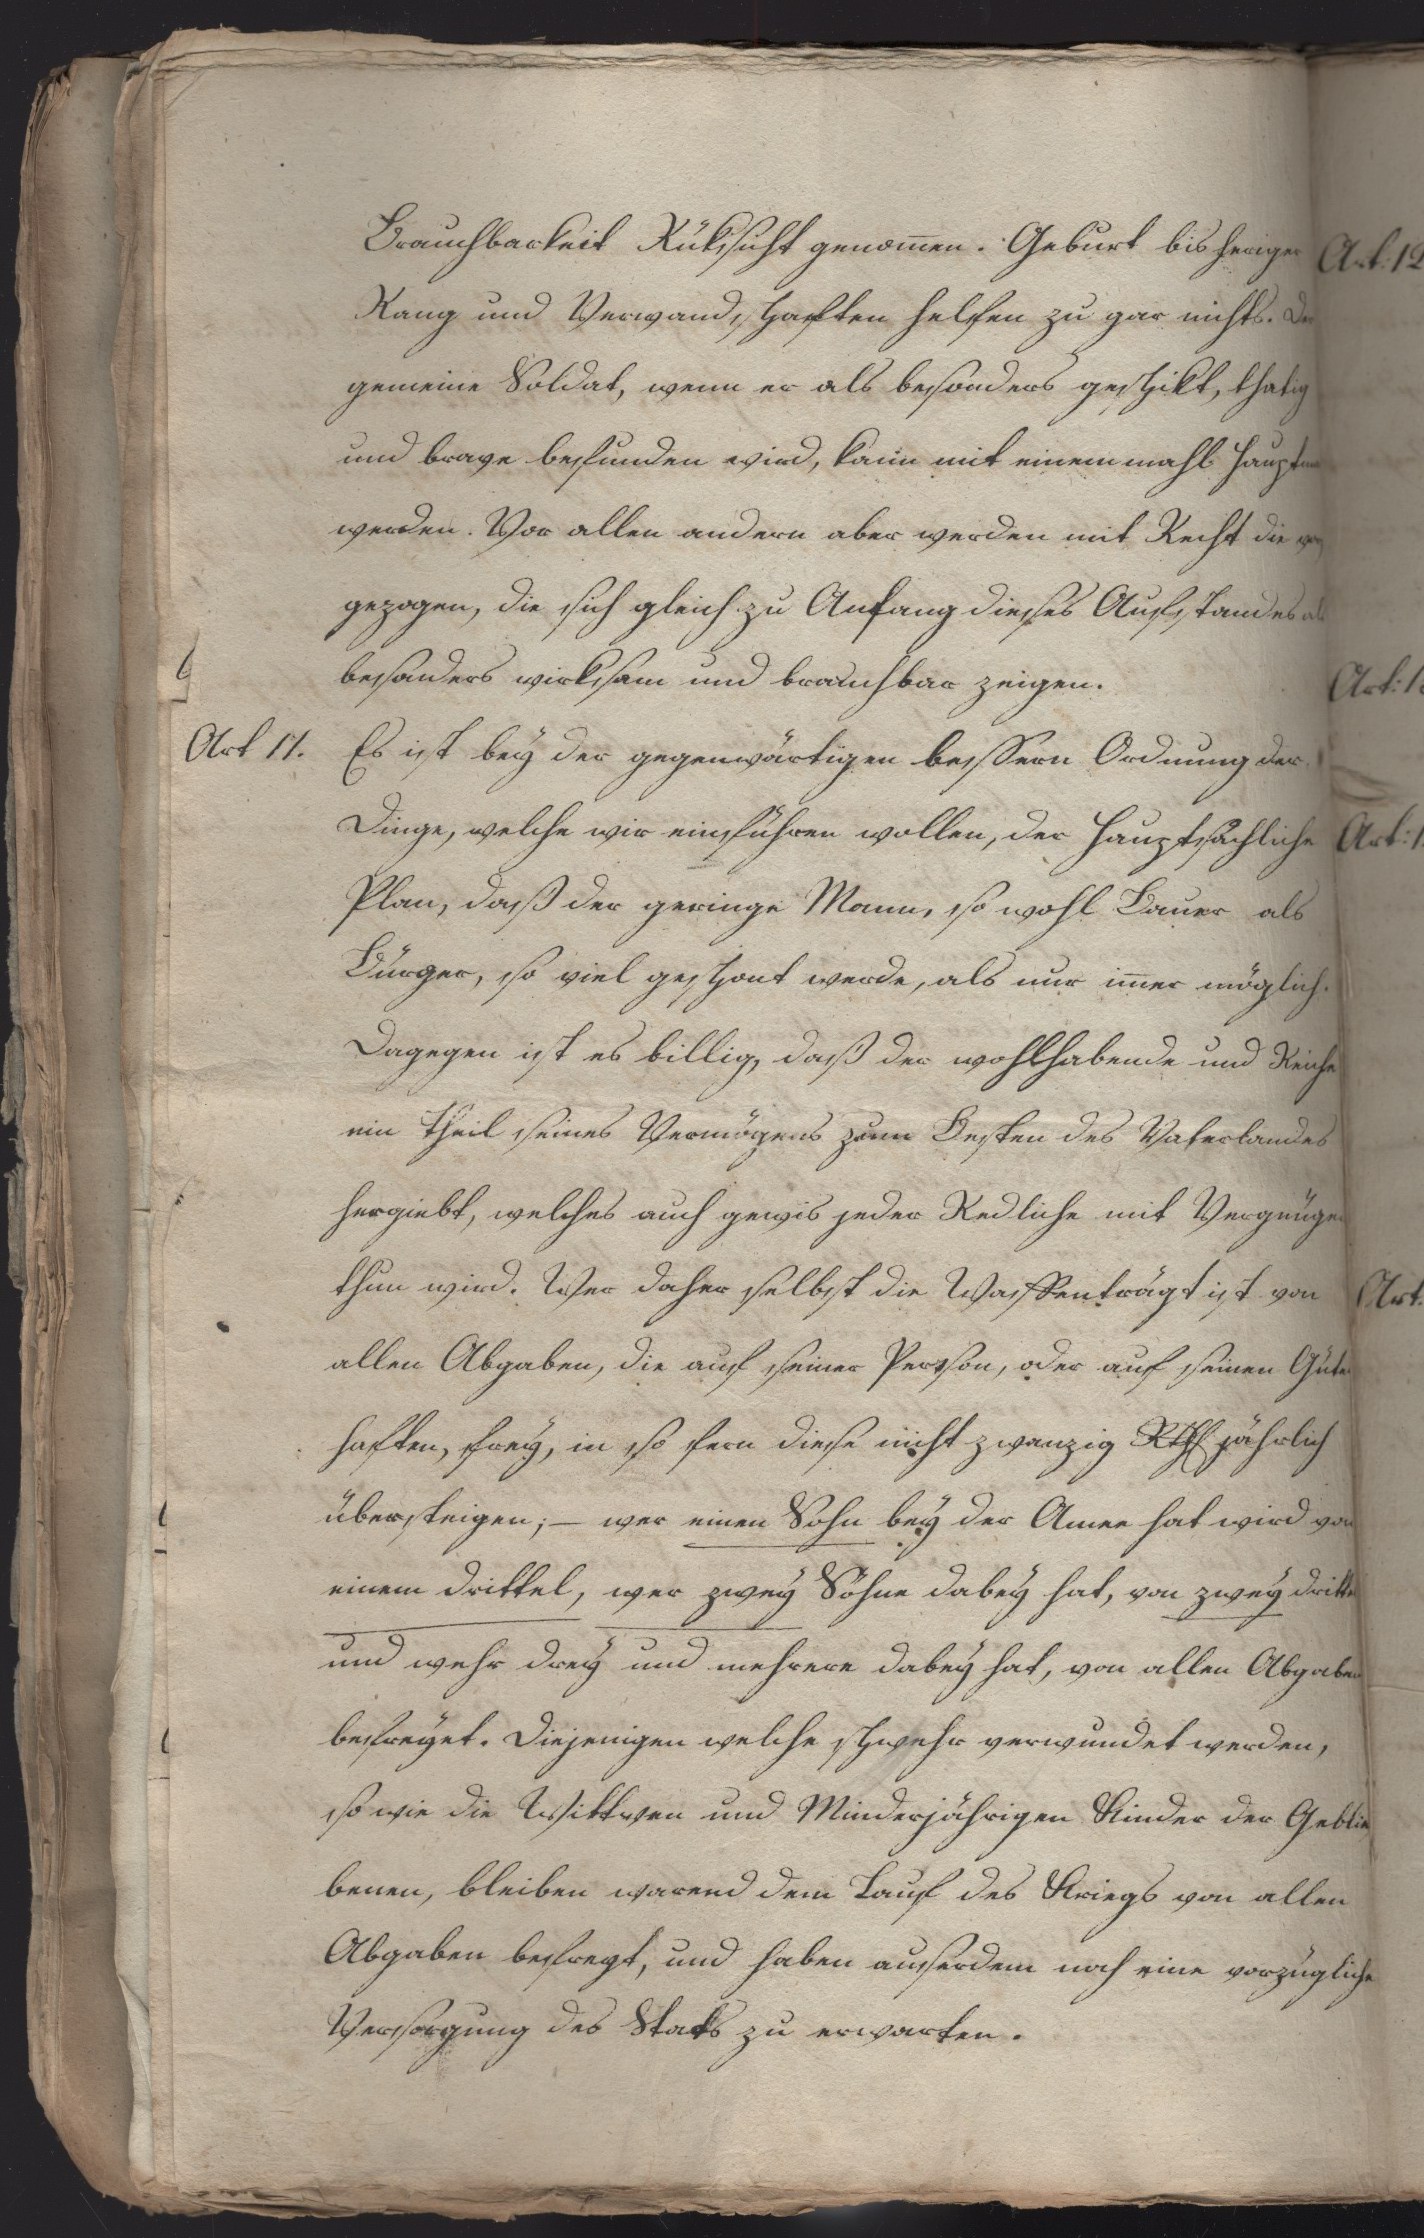 Brauchbarkeit Rüksicht genom̅en. Geburt bisheriger
Rang und Verwandschaften helfen zu gar nichts. Der
gemeine Soldat, wenn er als besonders geschikt, thatig
und brave befunden wird, kan̅ mit einemmahl Hauptm
werden. Vor allen andern aber werden mit Recht die vor
gezogen, die sich gleich zu Anfang dieses Aufstandes als
besonders wirksam und brauchbar zeigen.
Art 11. Es ist bey der gegenwärtigen bessern Ordnung der
Dinge, welche wir einführen wollen, der Hauptsächliche
Plan, daß der geringe Mann, so wohl Bauer als
Bürger, so viel geschont werde, als nur im̅er möglich.
Dagegen ist es billig, daß der wohlhabende und Reiche
ein Theil seines Vermögens zum Besten des Vaterlandes
hergiebt, welches auch gewis jeder Redliche mit Vergnügen
thun wird. Wer daher selbst die Waffen trägt ist von
allen Abgaben, die auf seiner Person, oder auf seinen Güter
haften, frey, in so fern diese nicht zwanzig Rthl jährlich
übersteigen; – wer einen Sohn bey der Amee hat wird von
einem drittel, wer zwey Söhne dabey hat, von zwey dritte
und wehr drey und mehrere dabey hat, von allen Abgaben
befreyet. Diejenigen welche schwehr verwundet werden,
so wie die Wittwen und Minderjährigen Kinder der Geblie
benen, bleiben warend dem Lauf des Kriegs von allen
Abgaben befreyt, und haben ausserdem noch eine vorzügliche
Versorgung des Stats zu erwarten.
Art: 12
Art: 1
Art: 1
Art: